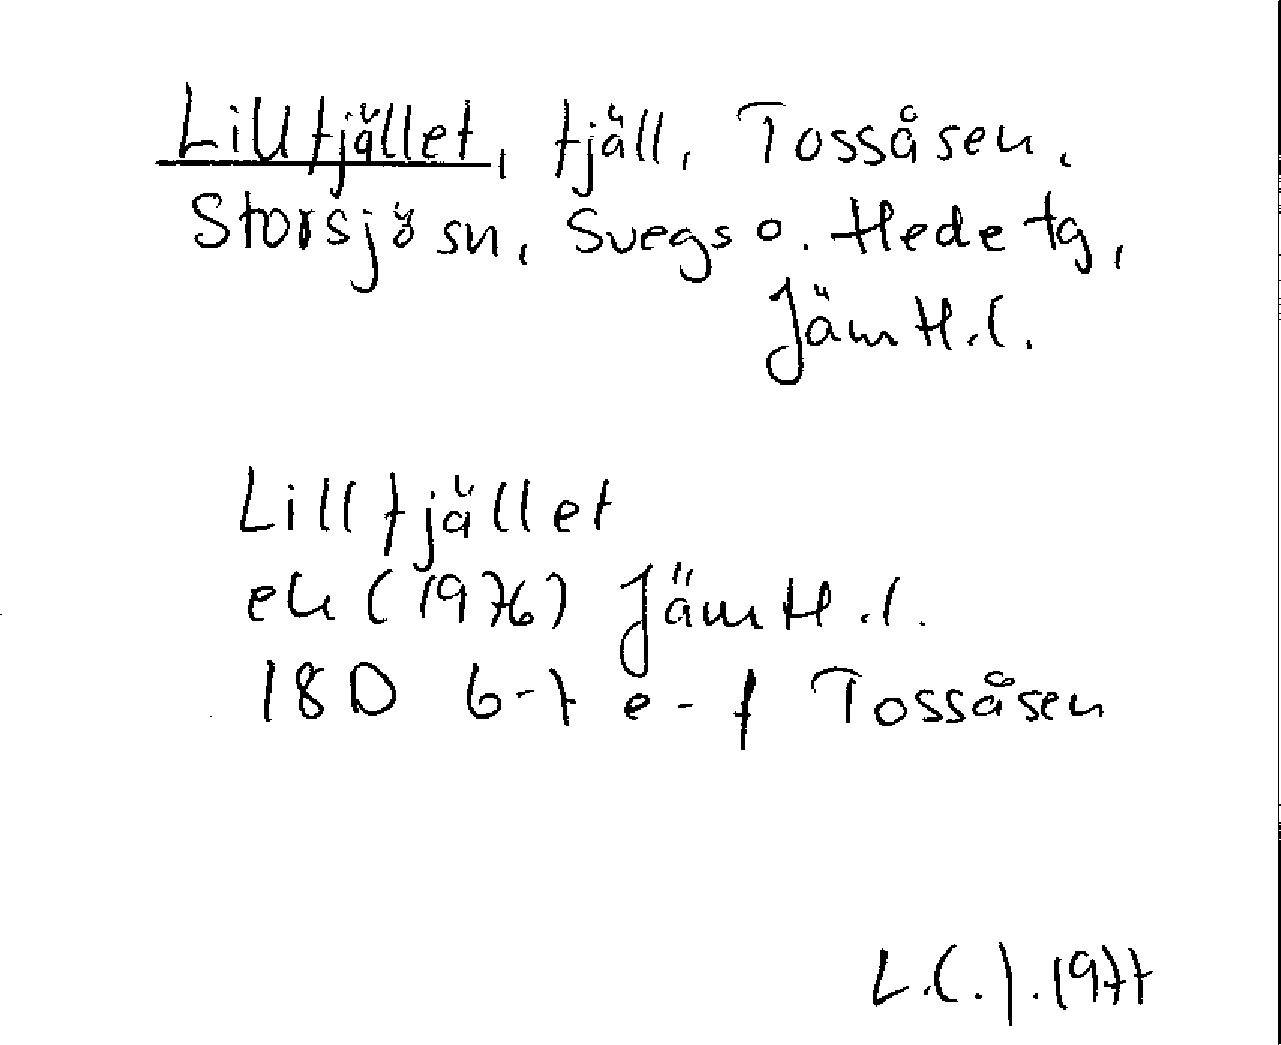 Lillfjället, fjäll, Tossåsen.
Storsjö sn, Svegs o. Hede tg,
Jämtl.l.
Lillfjället
ek (1976) Jämtl.l.
18D 6-7 e-f Tossåsen
L.C.J. 1977